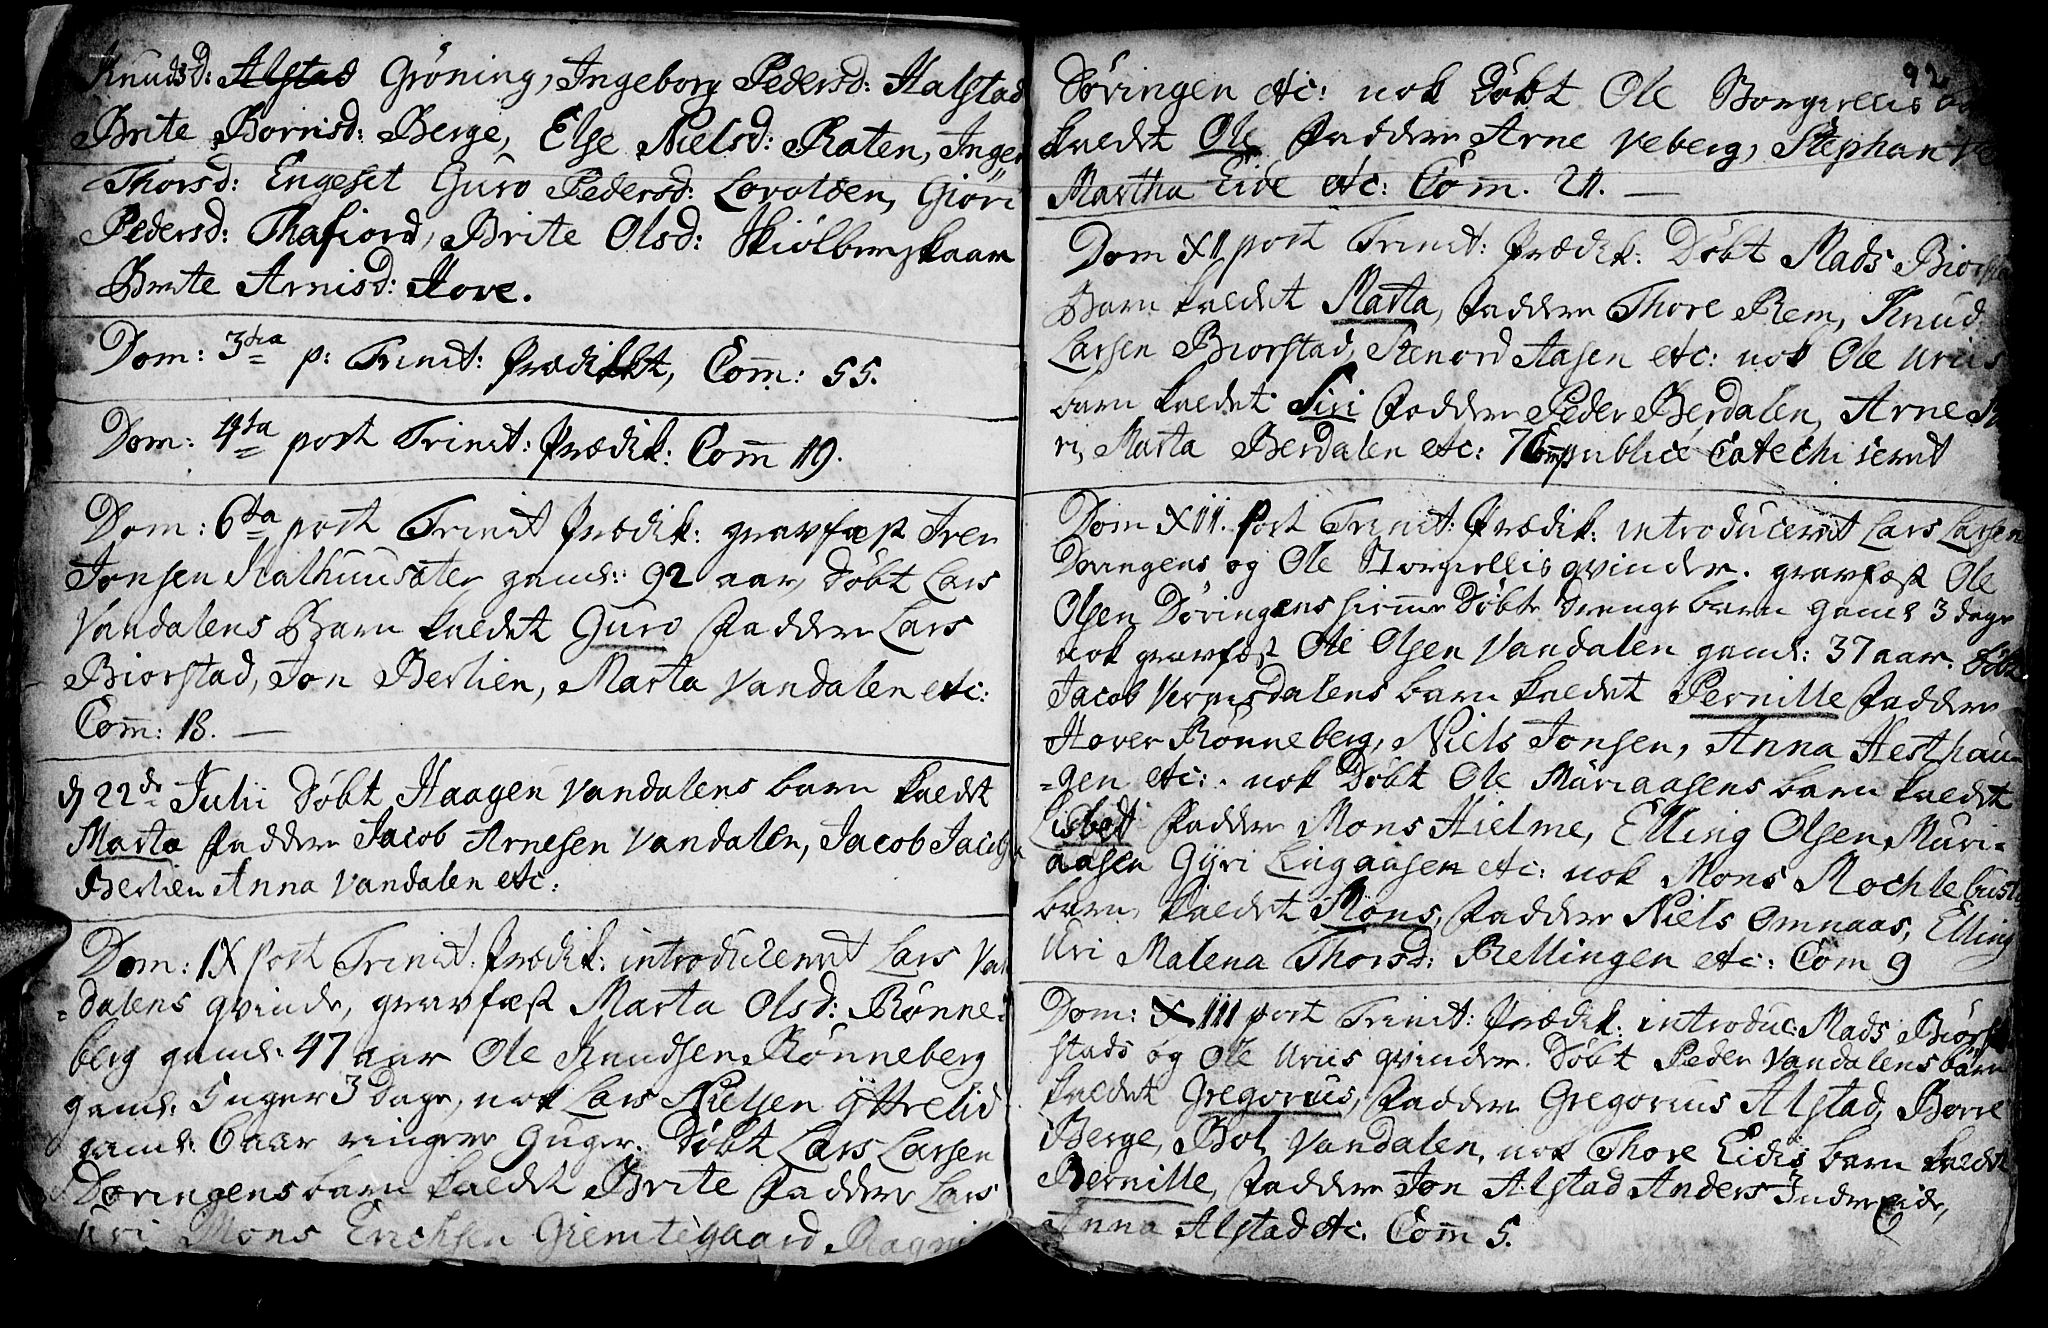 Knudsd: Alstad Gröning, Ingeborg Pedersd: Halstad
Brite Bornisd: Berge, Else Nielsd: Raten, Inger
Thorsd: Engeset Guro Pedersd: Lovolden, Giöri
Pedersd: Thafiord, Brite Olsd: Skiölbergskaar
Brite Arnisd: Hove.
Dom: 3tia p: Trinit: Prædiket, Com̄: 55.
Dom: 4ta post Trinit: Prædik: Com̄ 119.
Dom: 6ta post Trinit Prædik: gravfæst Iver
Jonsen gaml: 92 aar, döbt Lars
Vandalens Barn kaldet Guro Faddere Lars
Biorstad, Jon Berlien, Marta Vandalen etc:
Com̄: 18. —
d 22de Julii döbt Haagen Vandalens barn kaldet
Marta Faddere Jacob Arnesen Vandalen, Jacob
Berlien Anna Vandalen etc:
Dom: IX post Trinit: Prædik: introduceret Lars Van
=dalens qvinde, gravfæst Marta Olsd: Rönne=
berg gaml: 47 aar Ole Knudsen Rönneberg
gaml: 5 uger 3 dage, nok Lars Nielsen Ÿttrelid
gaml: 6 aar ringere 9 uger. Döbt Lars Larsen
Döringens barn kaldet Brite Faddere Lars
Uri Mons Erichsen Giemtegaard
92
Döringen etc: nok döbt Ole Borgiellis
kaldet Ole Faddere Arne Veberg, Stephan
Martha Eide etc: Com̄. 21. —
Dom XII post Trinit: Prædik: Döbt Mads
Barn kaldet Marta, Faddere Thore Rem, Knud
Larsen Biorstad, Stenord Aasen etc: nok Ole Uris
barn kaldet Siri Faddere Peder Berdalen, Arne
ri, Marta Berdalen etc: 7 Com̄ publice Catechiseret
Dom XIII. post Trinit: Prædik: introduceret Lars Larsen
Döringens og Ole Borgiellis qvinder. gravfæst Ole
Olsen Döringens hiemme döbte drenge barn gaml 3 dage
nok gravfæst Ole Olsen Vandalen gaml: 37 aar. döbt
Jacob barn kaldet Pernille Faddere
Haver Rönneberg, Niels Jonsen, Anna Hesthau=
=gen etc: nok döbt Ole Muriaasens barn kaldet
Lisbet Faddere Mons Hielme, Elling Olsen Muri=
aasen Gÿri Lingaasen etc: nok Mons
barn kaldet Mons, Faddere Niels Omnaas, Elling
Uri Malena Thorsd: Rellingen etc: Com 9
Dom: XIIII post Trinit: Prædik: introduc: Mads Biör
stads og Ole Uris qvinder. Döbt Peder Vandalens barn
kaldet Gregorius, Faddere Gregorius Alstad, Borre
Berge, Bol Vandalen, nok Thore Eidis barn kaldet
Bernille, Faddere Jon Alstad Anders Indre Eide,
Anna Alstad etc. Com̄ 5.